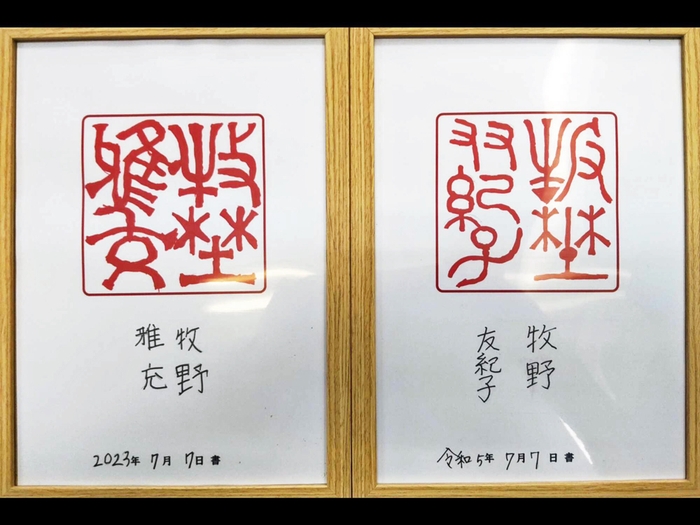 牧埜
雅充
牧野
雅充
2023年 7月 7日 書
牧埜
友紀子
牧野
友紀子
令和5年 7月7日 書